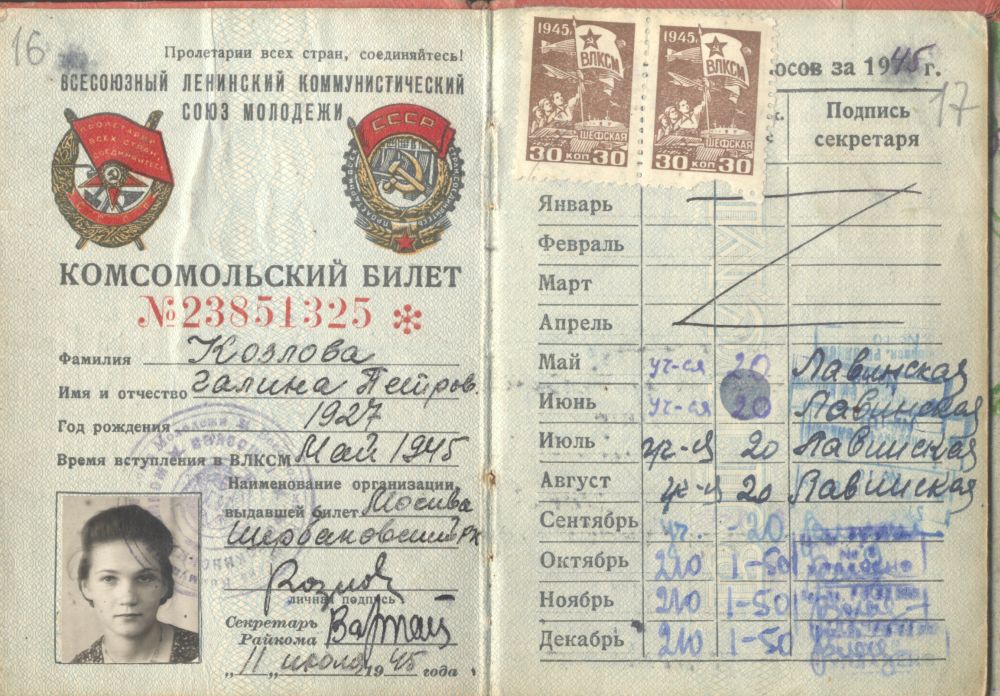 16
Пролетарии всех стран, соединяйтесь!
ВСЕСОЮЗНЫЙ ЛЕНИНСКИЙ КОММУНИСТИЧЕСКИЙ
СОЮЗ МОЛОДЕЖИ
ПРОЛЕТАРИИ
ВСЕХ СТРАН
СОЕДИНЯЙТЕСЬ
СССР
КОМСОМОЛЬСКИЙ БИЛЕТ
№ 23851325 *
Фамилия Козлова
Имя и отчество Галина Петров.
Год рождения 1927
Время вступления в ВЛКСМ Май 1945
Наименование организации,
выдавшей билет Москва
личная подпись
Секретарь
Райкома
„11" июля 1945 года
1945г. 1945г.
ВЛКСМ ВЛКСМ
ШЕФСКАЯ ШЕФСКАЯ
30 КОП 30 30 КОП 30
осов за 1945 г.
17
Подпись
секретаря
Январь
Февраль
Март
Апрель
Май уч-ся 20 Лавинская
Июнь уч-ся 20 Лавинская
Июль уч-ся 20 Лавинская
Август уч-ся 20 Лавинская
Сентябрь уч. -20
Октябрь 210 1-50
Ноябрь 210 1-50
Декабрь 210 1-50